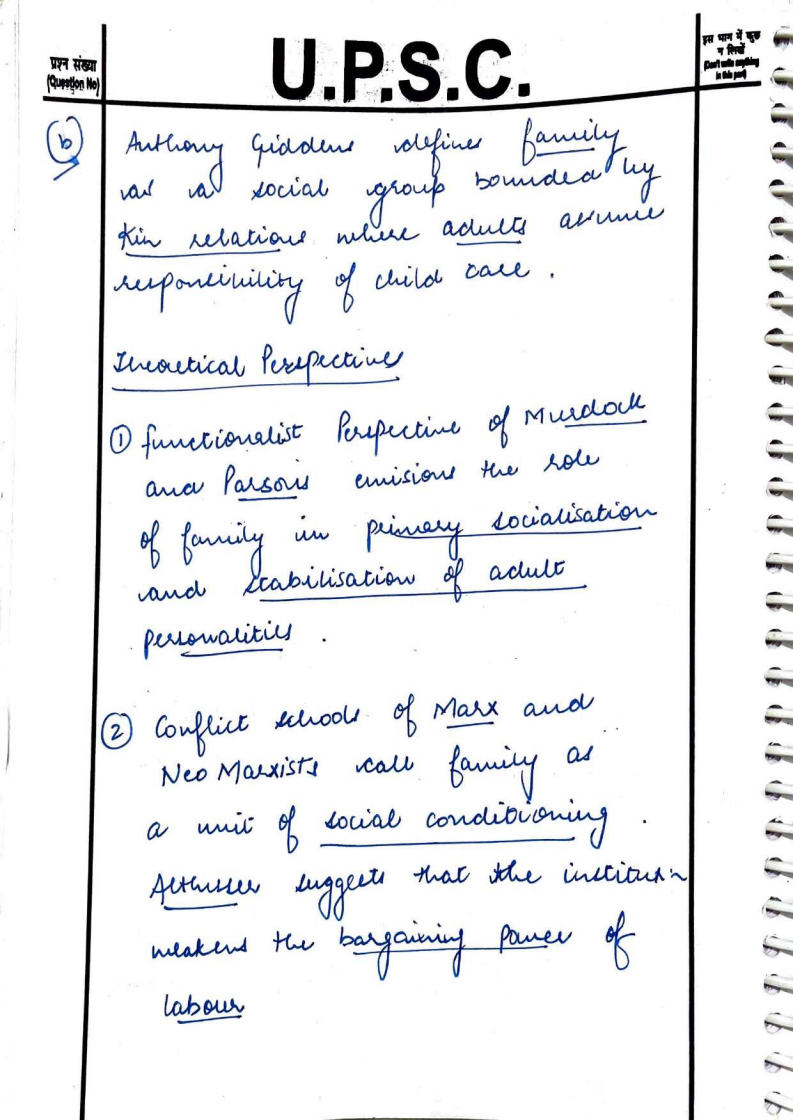 प्रश्न संख्या
(Question No)
U.P.S.C.
इस भाग में कुछ
न लिखें
(Don't write anything
in this part)
(b)
Anthony Giddens defines family
as a social group bounded by
Kin relations where adults assume
responsibility of child care.
Theoretical Perspectives
① functionalist Perspective of Murdock
and Parsons envisions the role
of family in primary socialisation
and stabilisation of adult
personalities.
② Conflict schools of Marx and
Neo Marxists call family as
a unit of social conditioning.
Althusser suggests that the institutn
weakens the bargaining power of
labour